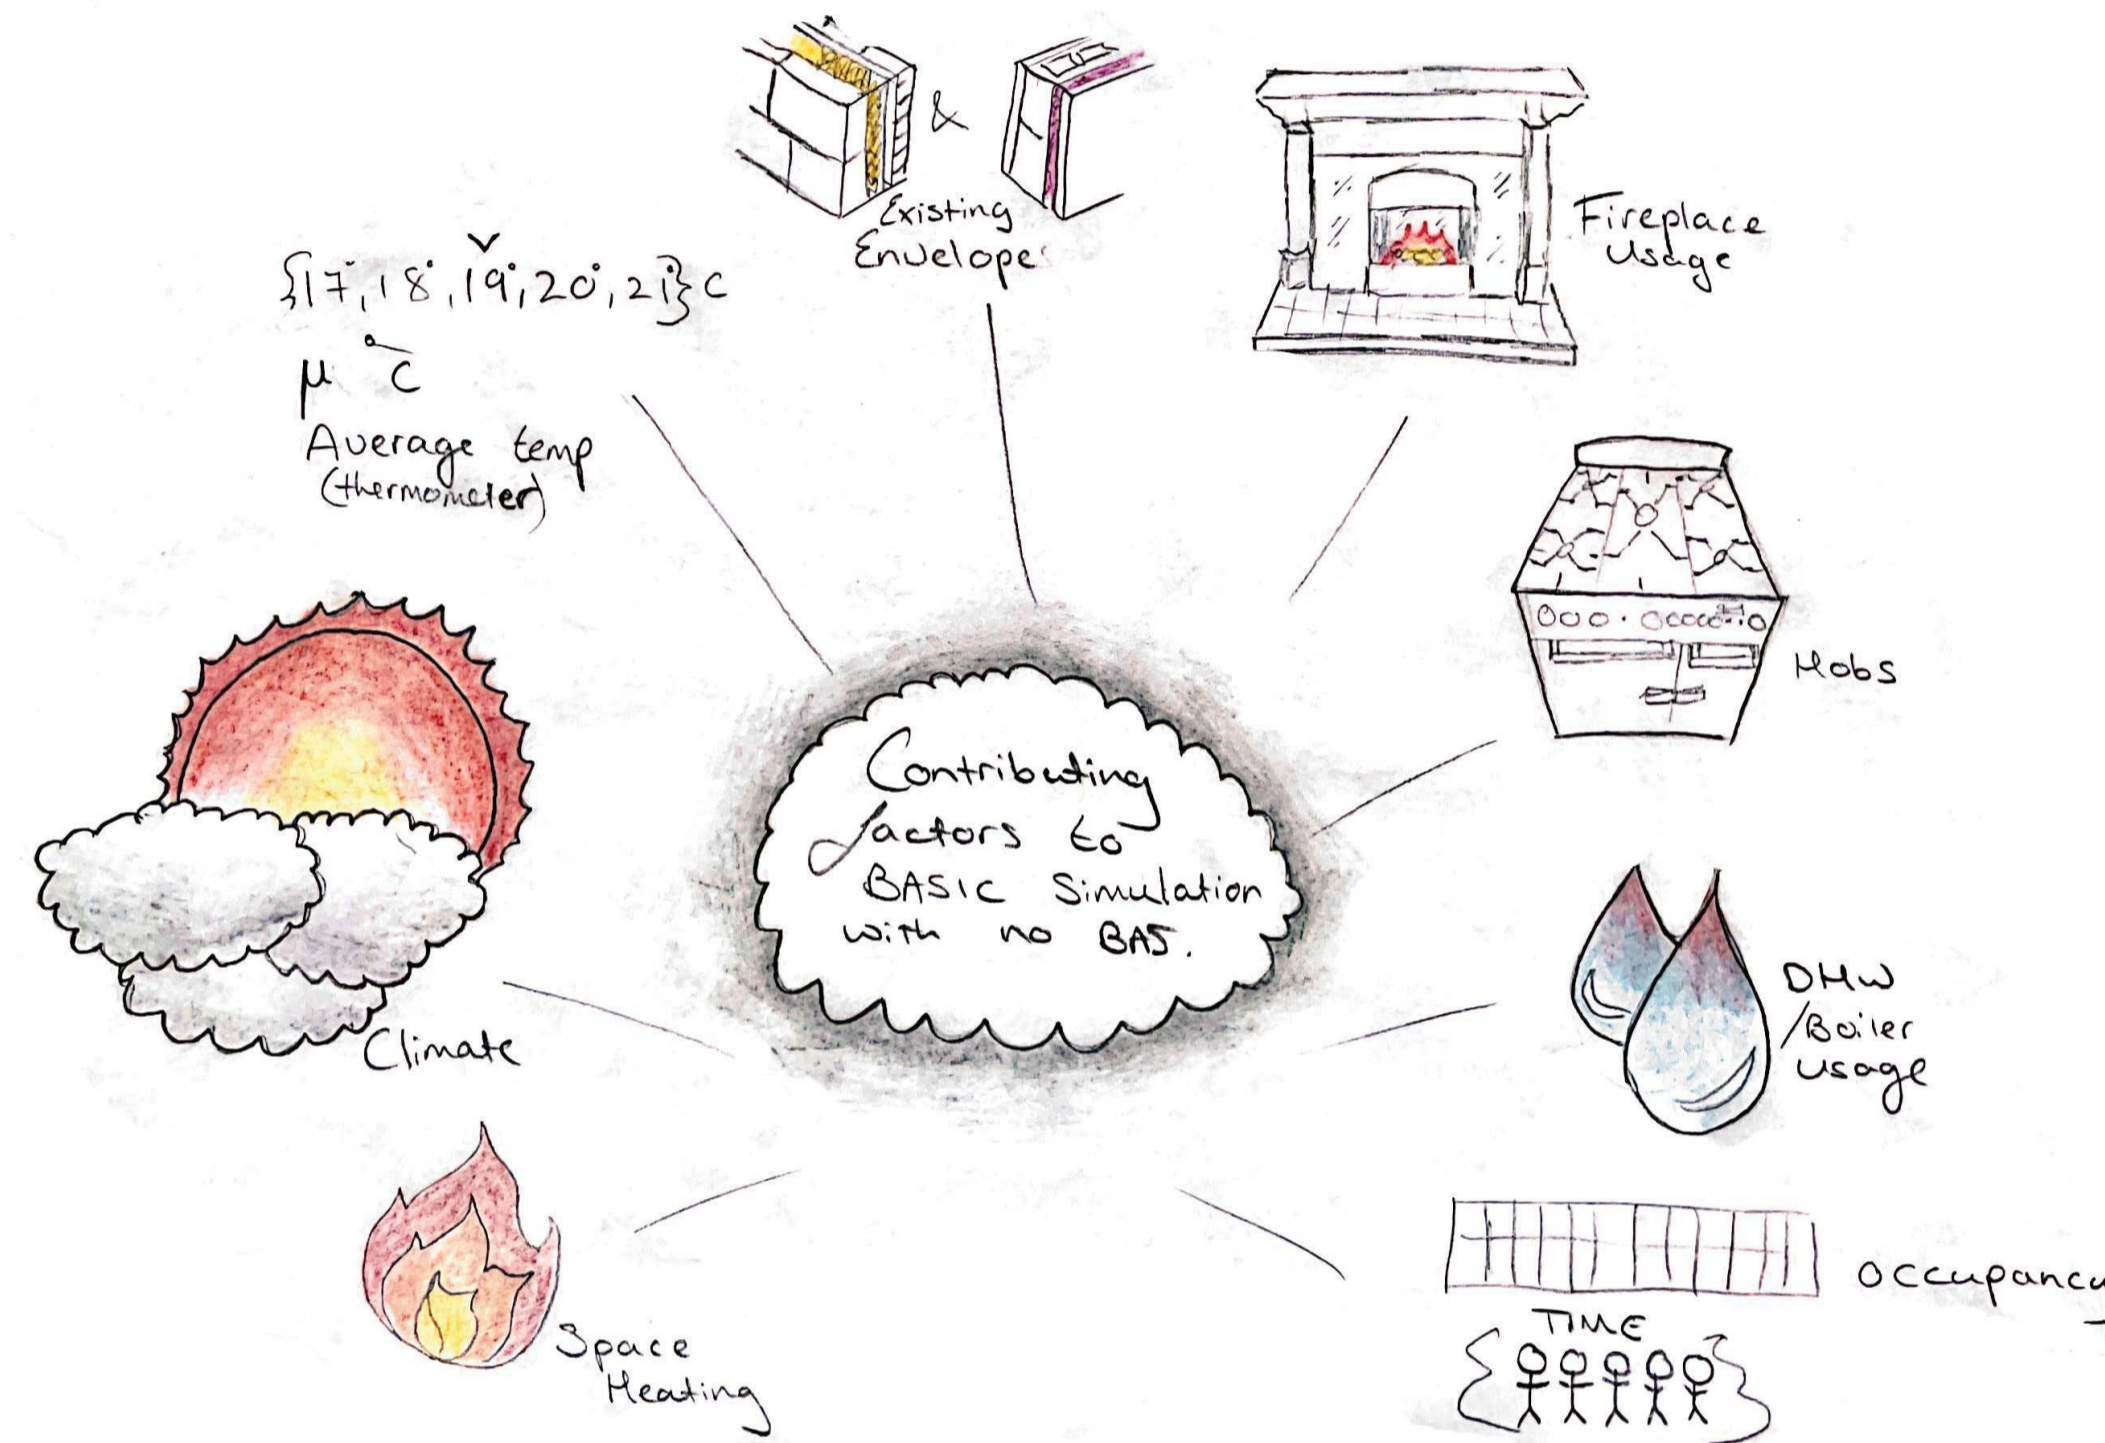 &
Existing
Envelope
Fireplace
Usage
{17°,18°,19°,20°,21°}C
μ °C
Average temp
(thermometer)
Hobs
Contributing
factors to
BASIC Simulation
with no BAS.
DHW
/Boiler
usage
Climate
Space
Heating
Occupancy
TIME